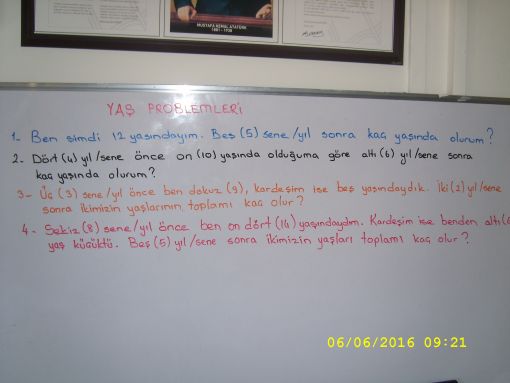 MUSTAFA KEMAL ATATÜRK
1881 - 1938
YAŞ PROBLEMLERİ
1- Ben şimdi 12 yaşındayım. Beş (5) sene/yıl sonra kaç yaşında olurum?
2- Dört (4) yıl/sene önce on (10) yaşında olduğuma göre altı (6) yıl/sene sonra
kaç yaşında olurum?
3- Üç (3) sene/yıl önce ben dokuz (9), kardeşim ise beş yaşındaydık. İki (2) yıl/sene
sonra ikimizin yaşlarının toplamı kaç olur?
4- Sekiz (8) sene/yıl önce ben on dört (14) yaşındaydım. Kardeşim ise benden altı(6
yaş küçüktü. Beş (5) yıl/sene sonra ikimizin yaşları toplamı kaç olur?
06/06/2016 09:21